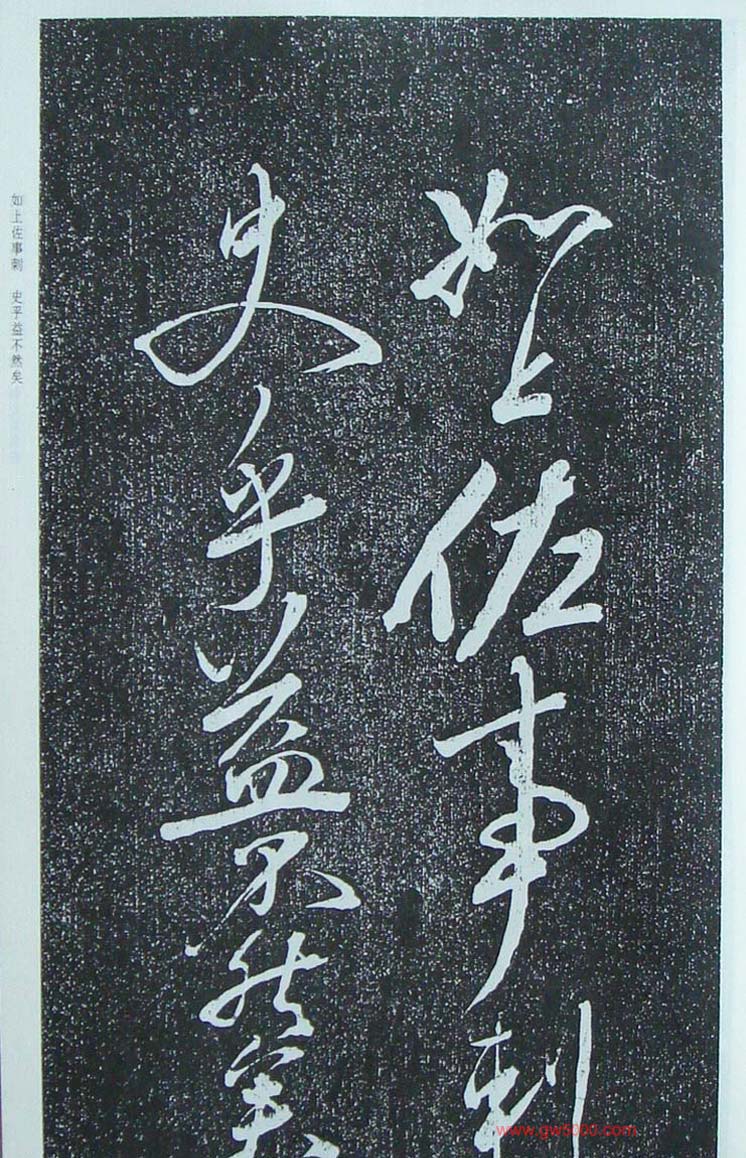 如上佐事刺
史乎益不然矣
如上佐事刺 史平益不然矣
www.gw5000.com